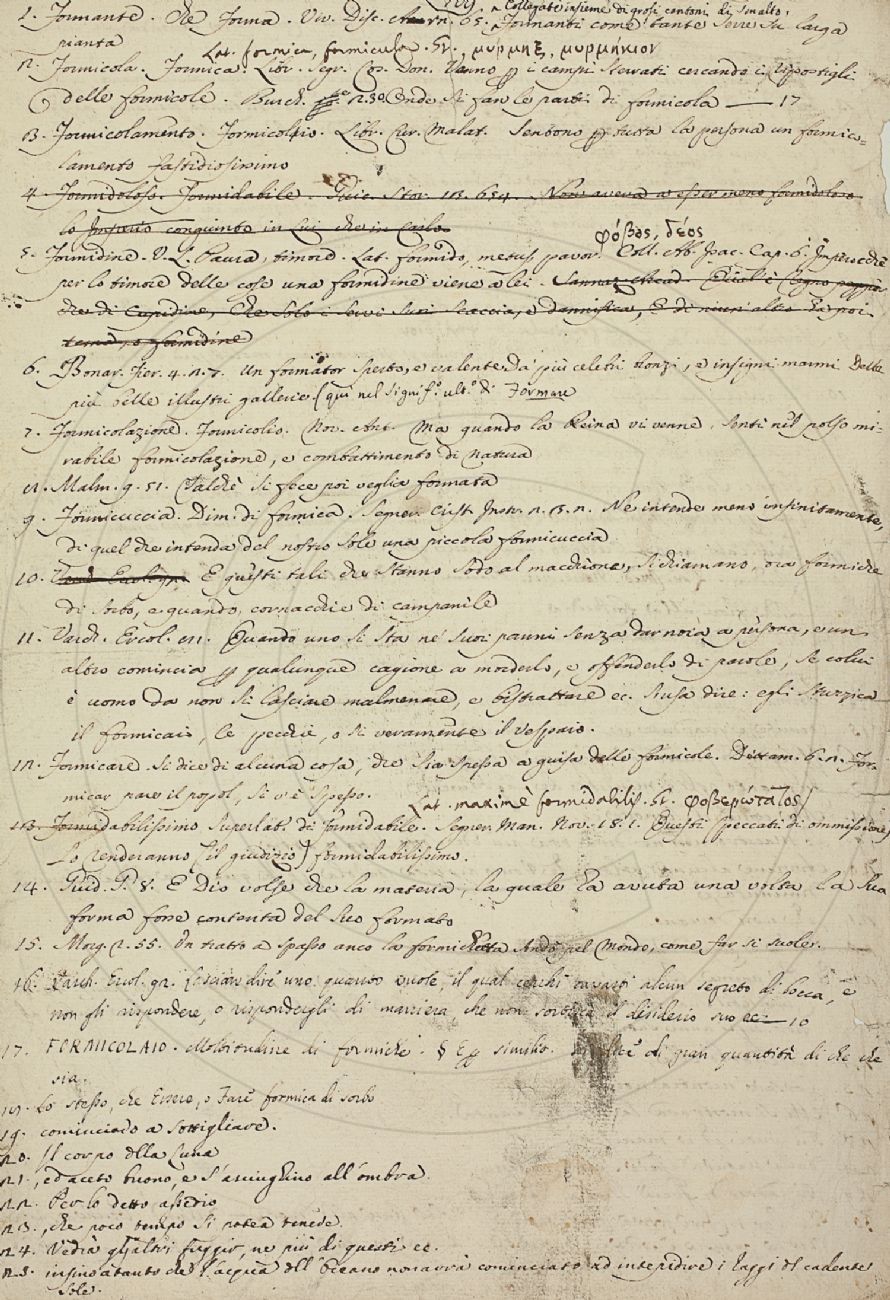 Collegati insieme di grossi cantoni di smalto,
1. Formante. Che forma. Viv. Disc. Arn. 65. Formanti come tante serre su larga
pianta
Lat. formica, formicula. Gr. μύρμηξ, μυρμήκιον
2. Formicola. Formica. Libr. Segr. Cos. Don. Vanno p i campi serrati cercando i ripostigli
delle formicole. Burch. 2. 30. Onde si fan le parti di formicola — 17
3. Formicolamento. Formicolio. Libr. Cur. Malat. Sentono p tutta la persona un formico=
lamento fastidiosissimo
4. Formidoloso. Formidabile. Guic. Stor. 13. 654. Non aveva a esser meno formidoloso
lo Imperio congiunto in lui che in Carlo
φόβος, δέος
5. Formidine. V. L. Paura, timore. Lat. formido, metus, pavor. Coll. Ab. Isac. Cap. 6. Imperocchè
per lo timore delle cose una formidine viene a lei. Sannaz. Arcad.
che di Cupidine, che solo i lievi suoi scaccia, e dannifica, E di niun'altro ha poi
tema, o formidine
6. Bonar. Fier. 4. 2. 7. Un formator sperto, e valente Da' più celebri bronzi, e insigni marmi Delle
più belle illustri gallerie (qui nel signif.o ult.o di Formare
7. Formicolazione. Formicolio. Nov. Ant. Ma quando la Reina vi venne, sentì nel polso mi-
rabile formicolazione, e combattimento di natura
8. Malm. 9. 51. Talchè si fece poi veglia formata
9. Formicuccia. Dim. di formica. Segner. Crist. Instr. 1. 13. 2. Ne intende meno infinitamente,
di quel che intenda del nostro Sole una piccola formicuccia
10. E questi tali che stanno sodo al macchione, si chiamano, ora formiche
di sorbo, e quando, cornacchie di campanile
11. Varch. Ercol. 81. Quando uno si sta ne' suoi panni senza dar noia a persona, e un
altro comincia p qualunque cagione a morderlo, e offenderlo di parole, se colui
è uomo da non si lasciare malmenare, e bistrattare ec. s'usa dire: egli stuzzica
il formicaio, le pecchie, o si veramente il vespaio.
12. Formicare si dice di alcuna cosa, che sia spessa a guisa delle formicole. Dittam. 6. 2. For-
micar pare il popol, sì v'è spesso.
Lat. maximè formidabilis. Gr. φοβερώτατος
13. Formidabilissimo Superlat. di formidabile. Segner. Man. Nov. 18. 1. Questi (peccati di ommissione)
Lo renderanno (il giudizio) formidabilissimo.
14. Giud. G. 8. E Dio volse che la materia, la quale ha avuta una volta la sua
forma fosse contenta del suo formato
15. Morg. 2. 55. Un tratto a spasso anco la formichetta Andò pel Mondo, come far si suole.
16. Varch. Ercol. 92. Lasciar dire uno quanto vuole, il qual cerchi cavarti alcun segreto di bocca, e
non gli rispondere, o rispondergli di maniera, che non sortisca il desiderio suo ec. — 10
17. FORMICOLAIO. Moltitudine di formiche. § E p similit. si dice di gran quantità di che che
sia.
18. Lo stesso, che Essere, o Fare formica di sorbo
19. cominciado a sottigliare.
20. Il corpo della Luna
21. , ed aceto buono, e s'asciughino all'ombra.
22. Per lo detto assedio
23. , che poco tempo si potea tenere.
24. Vedia gli altri fuggir, ne più di questi ec.
25. insino a tanto che l'acqua dell'Oceano non avrà cominciato ad intepidire i raggi del cadente
Sole.